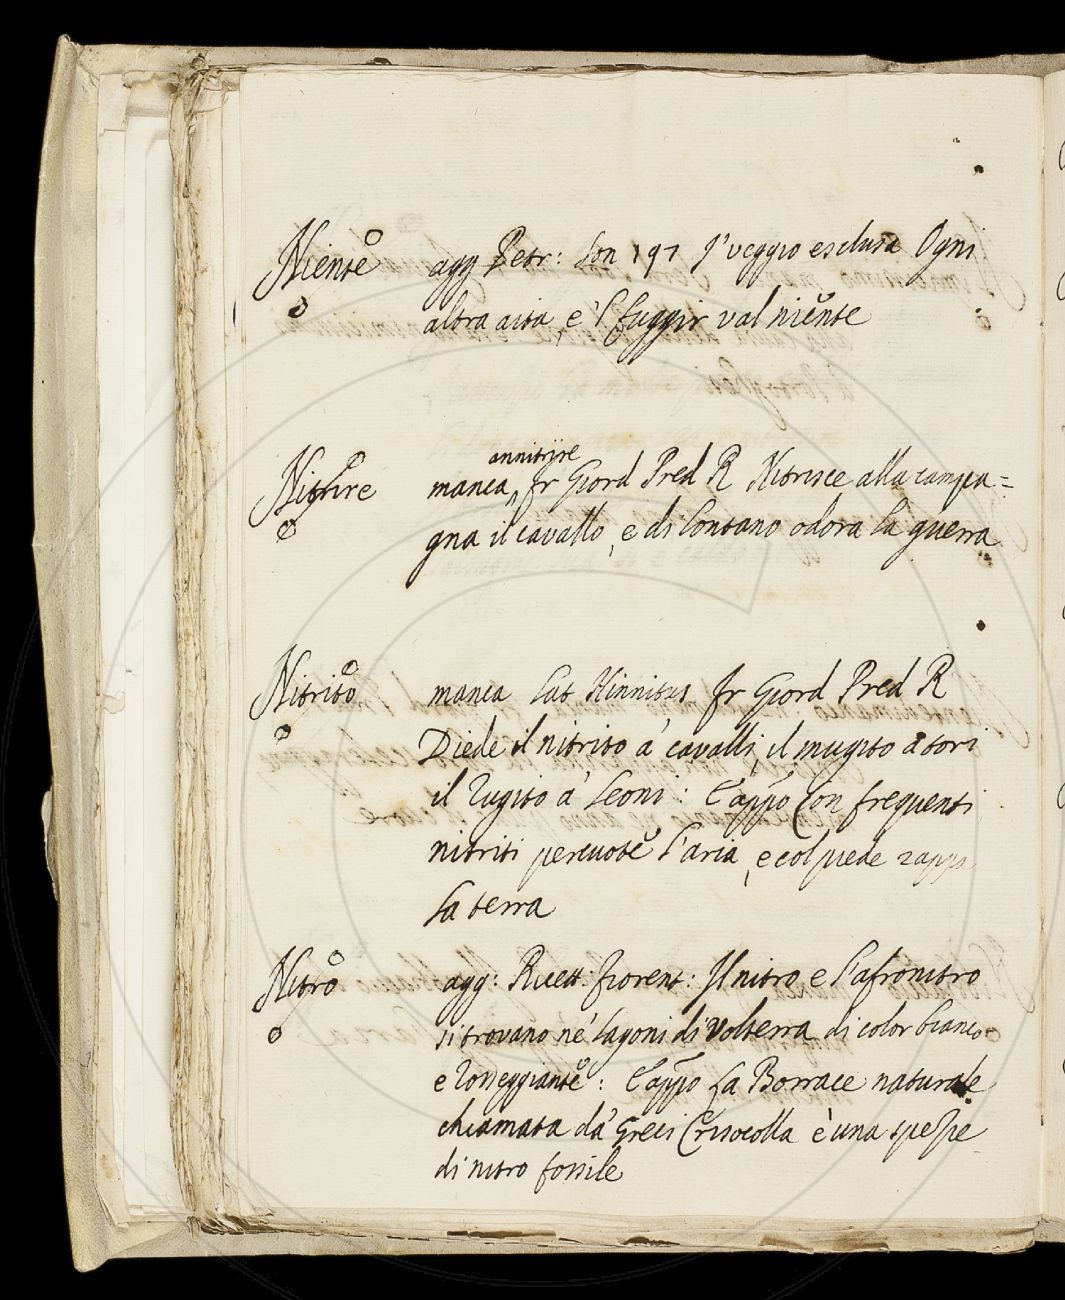 Niente agg Petr: Son 197 J'veggio esclusa Ogni
altra aita, e 'l fuggir val niente
annitrire
Nitrire manca, fr Giord Pred R Nitrisce alla campa=
gna il cavallo, e di lontano odora la guerra
Nitrito manca Lat Hinnitus fr Giord Pred R
Diede il nitrito a' cavalli, il mugito a tori
il rugito a' Leoni: E appo Con frequenti
nitriti percuote l'aria, e col piede zappa
la terra
Nitro agg: Ricett: fiorent: Il nitro e l'afronitro
si trovano ne' lagoni di Volterra di color bianco
e rosseggiante: E appo La Borrace naturale
chiamata da' Greci Crisocolla è una spezie
di nitro fossile